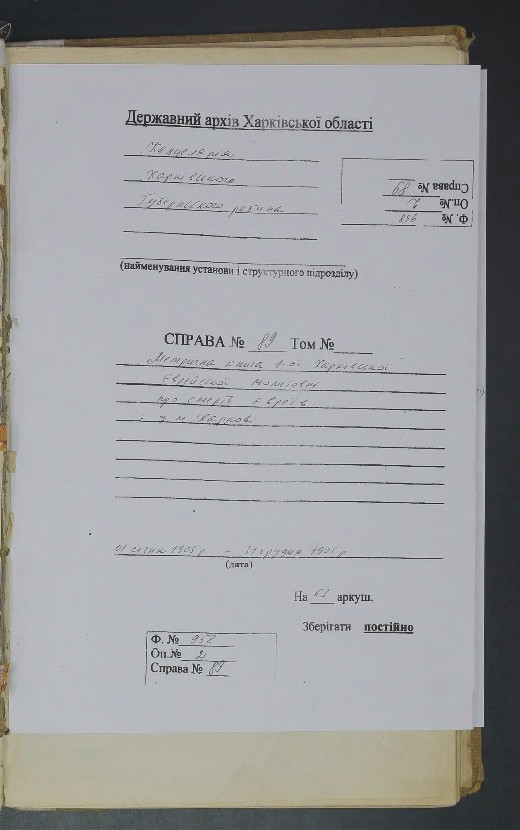 Державний архів Харківської області
Канцелярія
Харківського
Губернського рабина
Ф. №
Оп.№
Справа № 89
(найменування установи і структурного підрозділу)
СПРАВА № 89 Том №
Метрична книга 1-ої Харківської
Єврейської молитовні
про смерть євреїв
у м. Харкові
01 січня 1905 р - 31 грудня 1905 р
(дата)
На аркуш.
Зберігати постійно
Ф. № 958
Оп.№ 2
Справа № 89